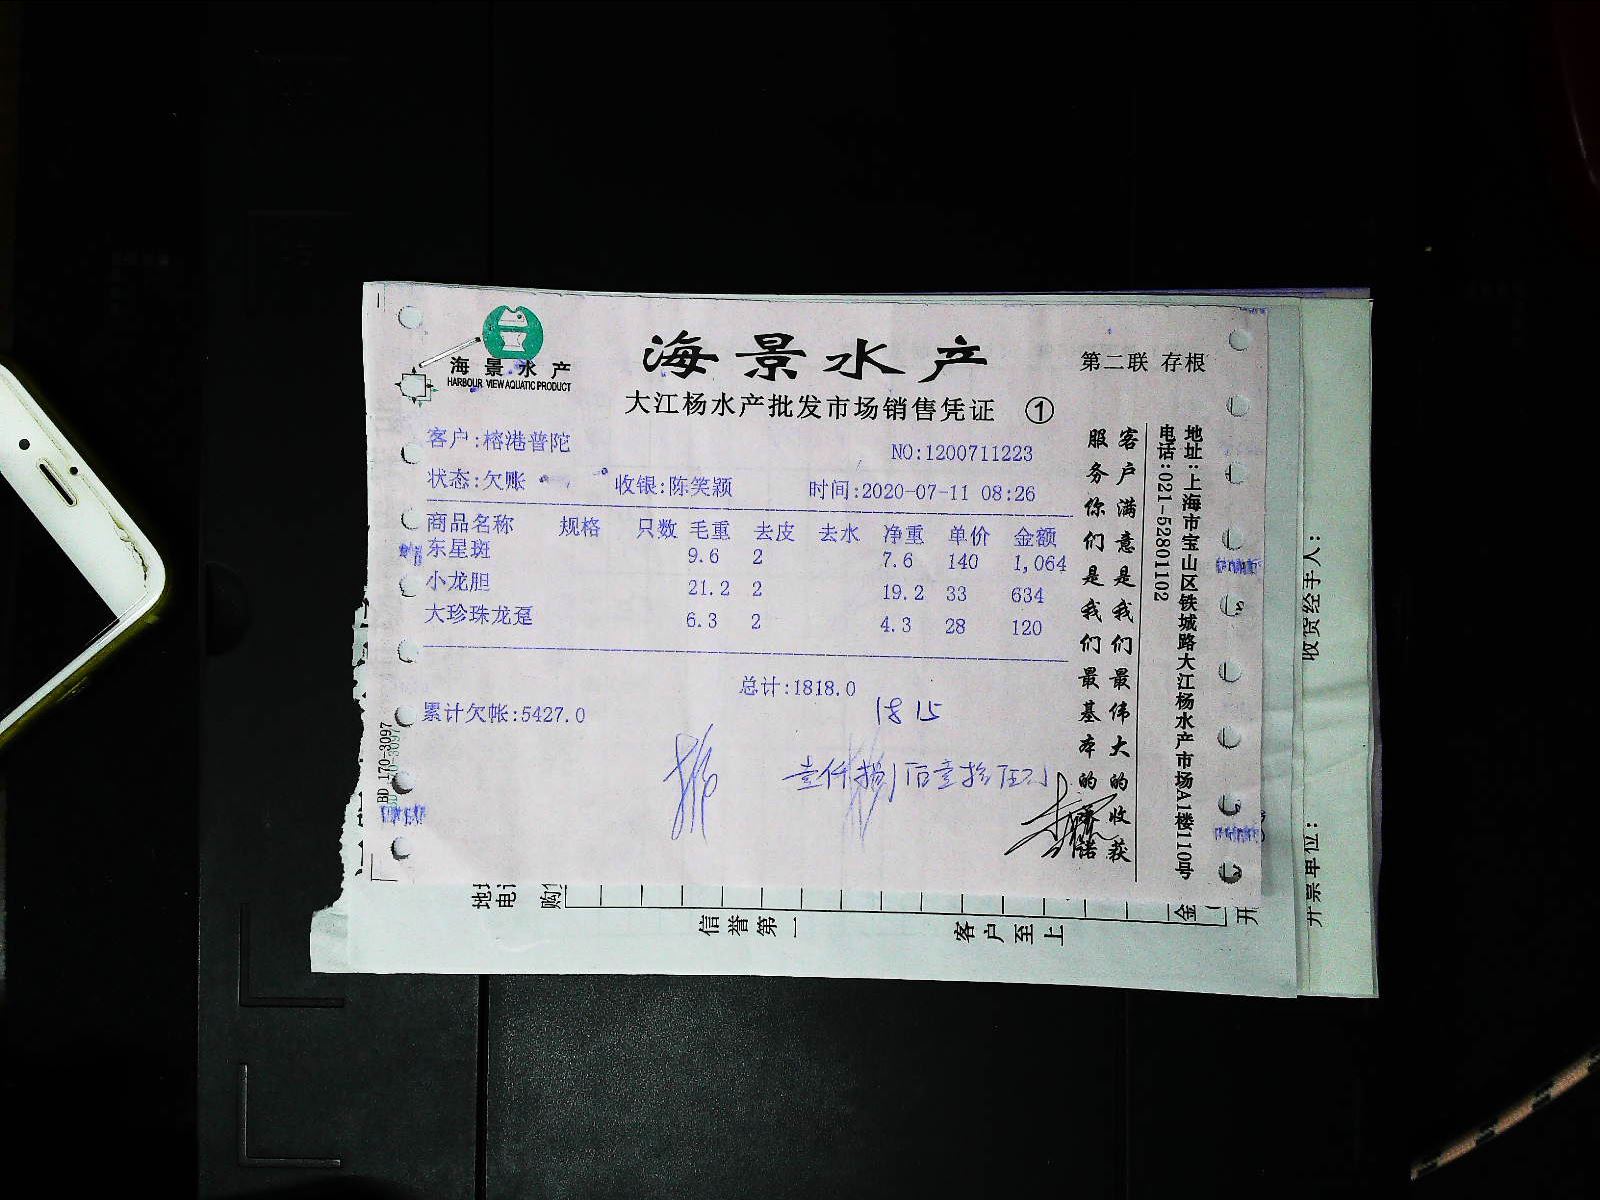 海景水产
HARBOUR VIEW AQUATIC PRODUCT
海景水产
第二联 存根
大江杨水产批发市场销售凭证 ①
客户:榕港普陀
NO:1200711223
状态:欠账 收银:陈笑颖 时间:2020-07-11 08:26
商品名称 规格 只数 毛重 去皮 去水 净重 单价 金额
东星斑 9.6 2 7.6 140 1,064
小龙胆 21.2 2 19.2 33 634
大珍珠龙趸 6.3 2 4.3 28 120
总计:1818.0
累计欠帐:5427.0
1815
壹仟捌佰壹拾伍
客户满意是我们最伟大的收获
服务你们是我们最基本的承诺
地址:上海市宝山区铁城路大江杨水产市场A1楼110号
电话:021-52801102
BD 170-3097
收货经手人:
开票单位:
电
购
信誉第一
客户至上
金
开